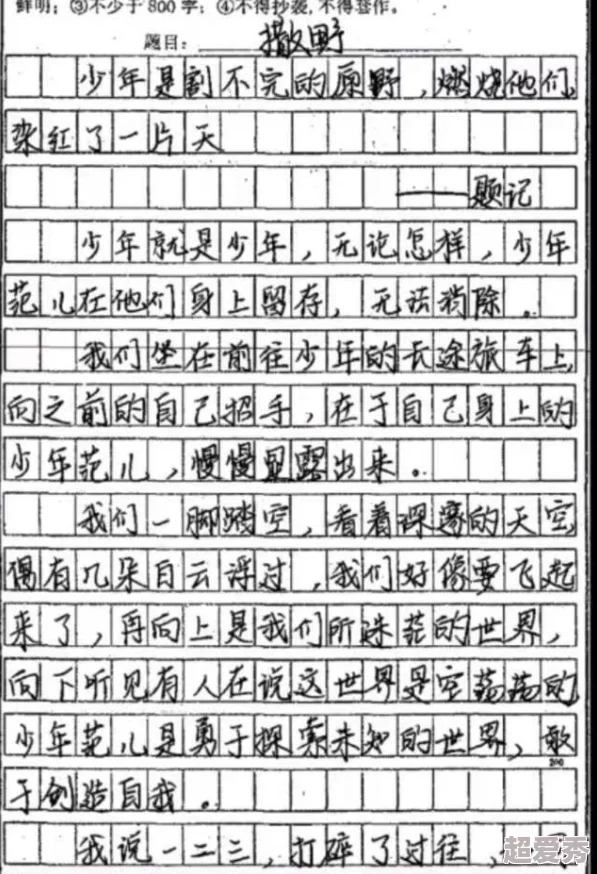 鲜明；③不少于800字；④不得抄袭，不得套作。
题目：撒野
少年是割不完的原野，燃烧他们，
染红了一片天
——题记
少年就是少年，无论怎样，少年
范儿在他们身上留存，无法消除。
我们坐在前往少年的长途旅车上，
向之前的自己招手，在于自己身上的
少年范儿，慢慢显露出来。
我们一脚踏空，看着深寥的天空
偶有几朵白云浮过，我们好像要飞起
来了，再向上是我们所踩范的世界，
向下听见有人在说这世界是空荡荡的
少年范儿是勇于探索未知的世界，敢
200
于创造自我。
我说一二三，打碎了过往，
超爱秀